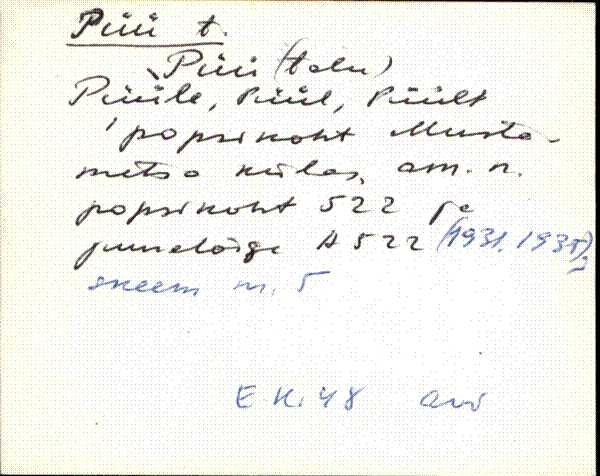 Püü t.
`Püü (talu)
Püüle, Püül, Püült
'popsikoht Musta-
metsa külas, am. n.
popsikoht 522 ja
juurelõige A 522 (1931. 1935)
skeem nr. 5
E K. 48